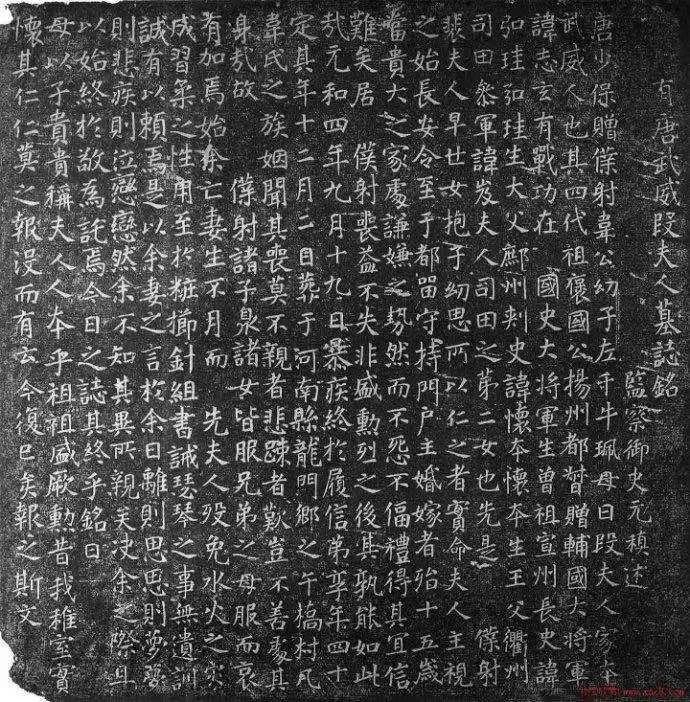 有唐武威段夫人墓誌銘
監察御史元稹述
唐少保贈僕射韋公幼子左千牛珮母曰段夫人家本
武威人也其四代祖褒國公揚州都督贈輔國大將軍
諱志玄有戰功在 國史大將軍生曾祖宣州長史諱
弘珪弘珪生大父鄜州刺史諱懷本懷本生王父衢州
司田參軍諱岌夫人司田之第二女也先是 僕射
裴夫人早世女抱子幼思所以仁之者實命夫人主視
之始長安令至于都留守持門戶主婚嫁者殆十五歲
當貴大之家處謙嫌之勢然而不怨不偪禮得其宜信
難矣居 僕射喪益不失非盛勳烈之後其孰能如此
哉元和四年九月十九日暴疾終於履信第享年四十
定其年十二月二日葬于河南縣龍門鄉之午橋村凡
韋氏之族姻聞其喪莫不親者悲疎者歎豈不善處其
身哉故 僕射諸子泉諸女皆服兄弟之母服而哀
有加焉始余亡妻生不月而 先夫人歿免水火之災
成習柔之性用至於粧櫛針組書誡瑟琴之事無遺訓
誠有以賴焉是以余妻之言於余曰離則思思則夢夢
則悲疾則泣戀戀然余不知其異所親矣決余之際且
以始終於敬為託焉今日之誌其終乎銘曰
母以子貴貴稱夫人人本乎祖祖盛厥勳昔我稚室實
懷其仁仁莫之報沒而有云今復已矣報之斯文